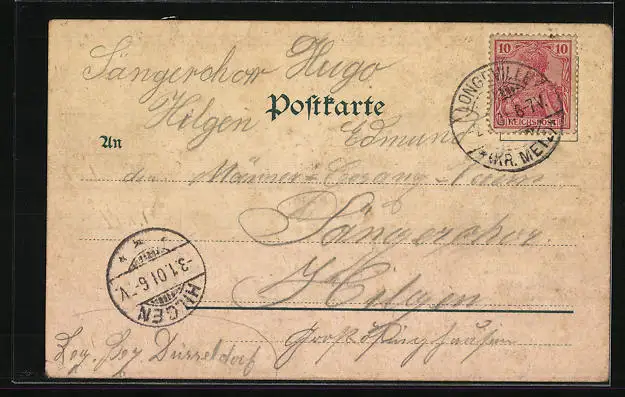 Sängerchor Hugo
Hilgen Edmund
Postkarte
An
den Männer-Gesang-Verein
Sängerchor
Hilgen
Bez. Düsseldorf
10 10
REICHSPOST
LONGEVILLE
(KR. METZ)
HILGEN
-3.1.01.6-7.V.